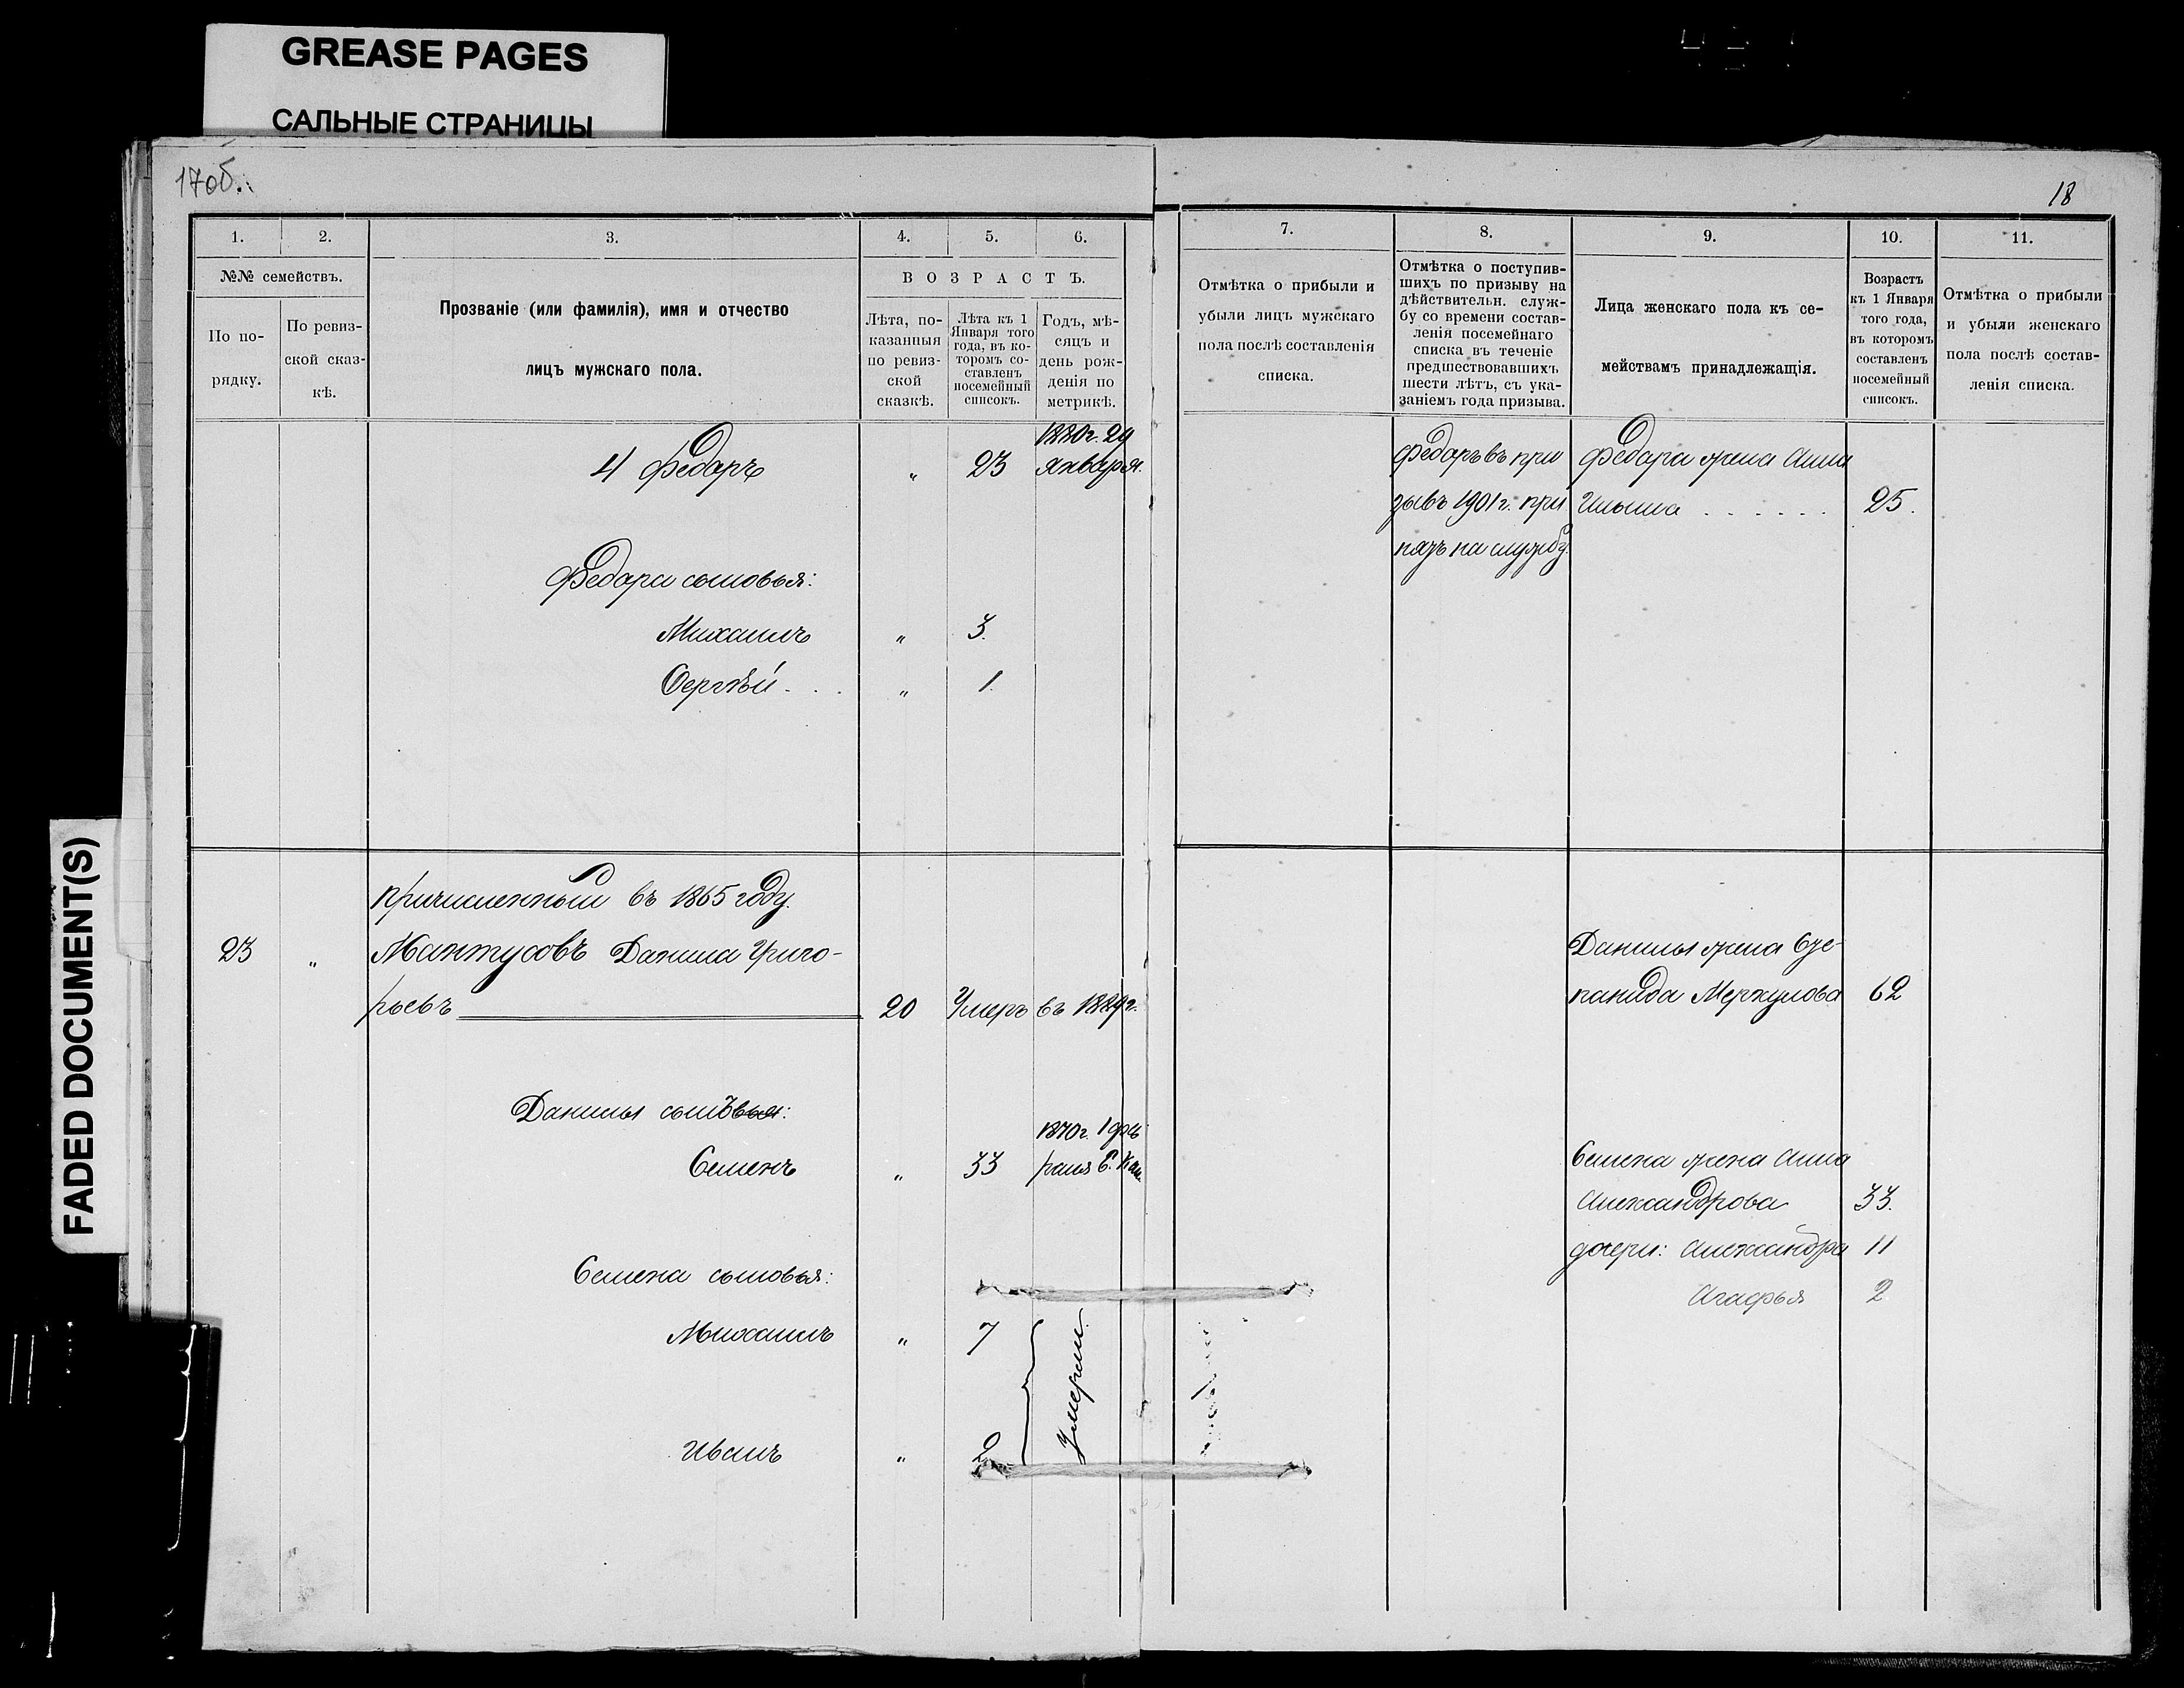 GREASE PAGES
САЛЬНЫЕ СТРАНИЦЫ
FADED DOCUMENT(S)
17об.
1.
2.
3.
4.
5.
6.
№№ семействъ.
По по-
рядку.
По ревиз-
ской сказ-
кѣ.
Прозваніе (или фамилія), имя и отчество
лицъ мужскаго пола.
ВОЗРАСТЪ.
Лѣта, по-
казанныя
по ревиз-
ской
сказкѣ.
Лѣта къ 1
Января того
года, въ ко-
торомъ со-
ставленъ
посемейный
списокъ.
Годъ, мѣ-
сяцъ и
день рож-
денія по
метрикѣ.
4 Федоръ " 23 1880г. 29
Января.
Федора сыновья:
Михаилъ " 3.
Сергѣй . . . " 1.
Причисленный въ 1865 году.
23 " Мантусовъ Данила Григо-
рьевъ 20 Умеръ въ 1889г.
Данилы сынъ:
Семенъ " 33 1870г. 1 фев
раля
Семена сыновья:
Михаилъ " 7
Иванъ " 2
Умерли.
18
7.
8.
9.
10.
11.
Отмѣтка о прибыли и
убыли лицъ мужскаго
пола послѣ составленія
списка.
Отмѣтка о поступив-
шихъ по призыву на
дѣйствительн. служ-
бу со времени состав-
ленія посемейнаго
списка въ теченіе
предшествовавшихъ
шести лѣтъ, съ ука-
заніемъ года призыва.
Лица женскаго пола къ се-
мействамъ принадлежащія.
Возрастъ
къ 1 Января
того года,
въ которомъ
составленъ
посемейный
списокъ.
Отмѣтка о прибыли
и убыли женскаго
пола послѣ состав-
ленія списка.
Федоръ въ при
зывъ 1901г. при
нятъ на службу.
Федора жена Анна
Ильина . . . . . . 25.
Данилы жена Сте-
панида Меркулова 62
Семена жена Анна
Александрова 33.
дочери: Александра 11
Агафья 2